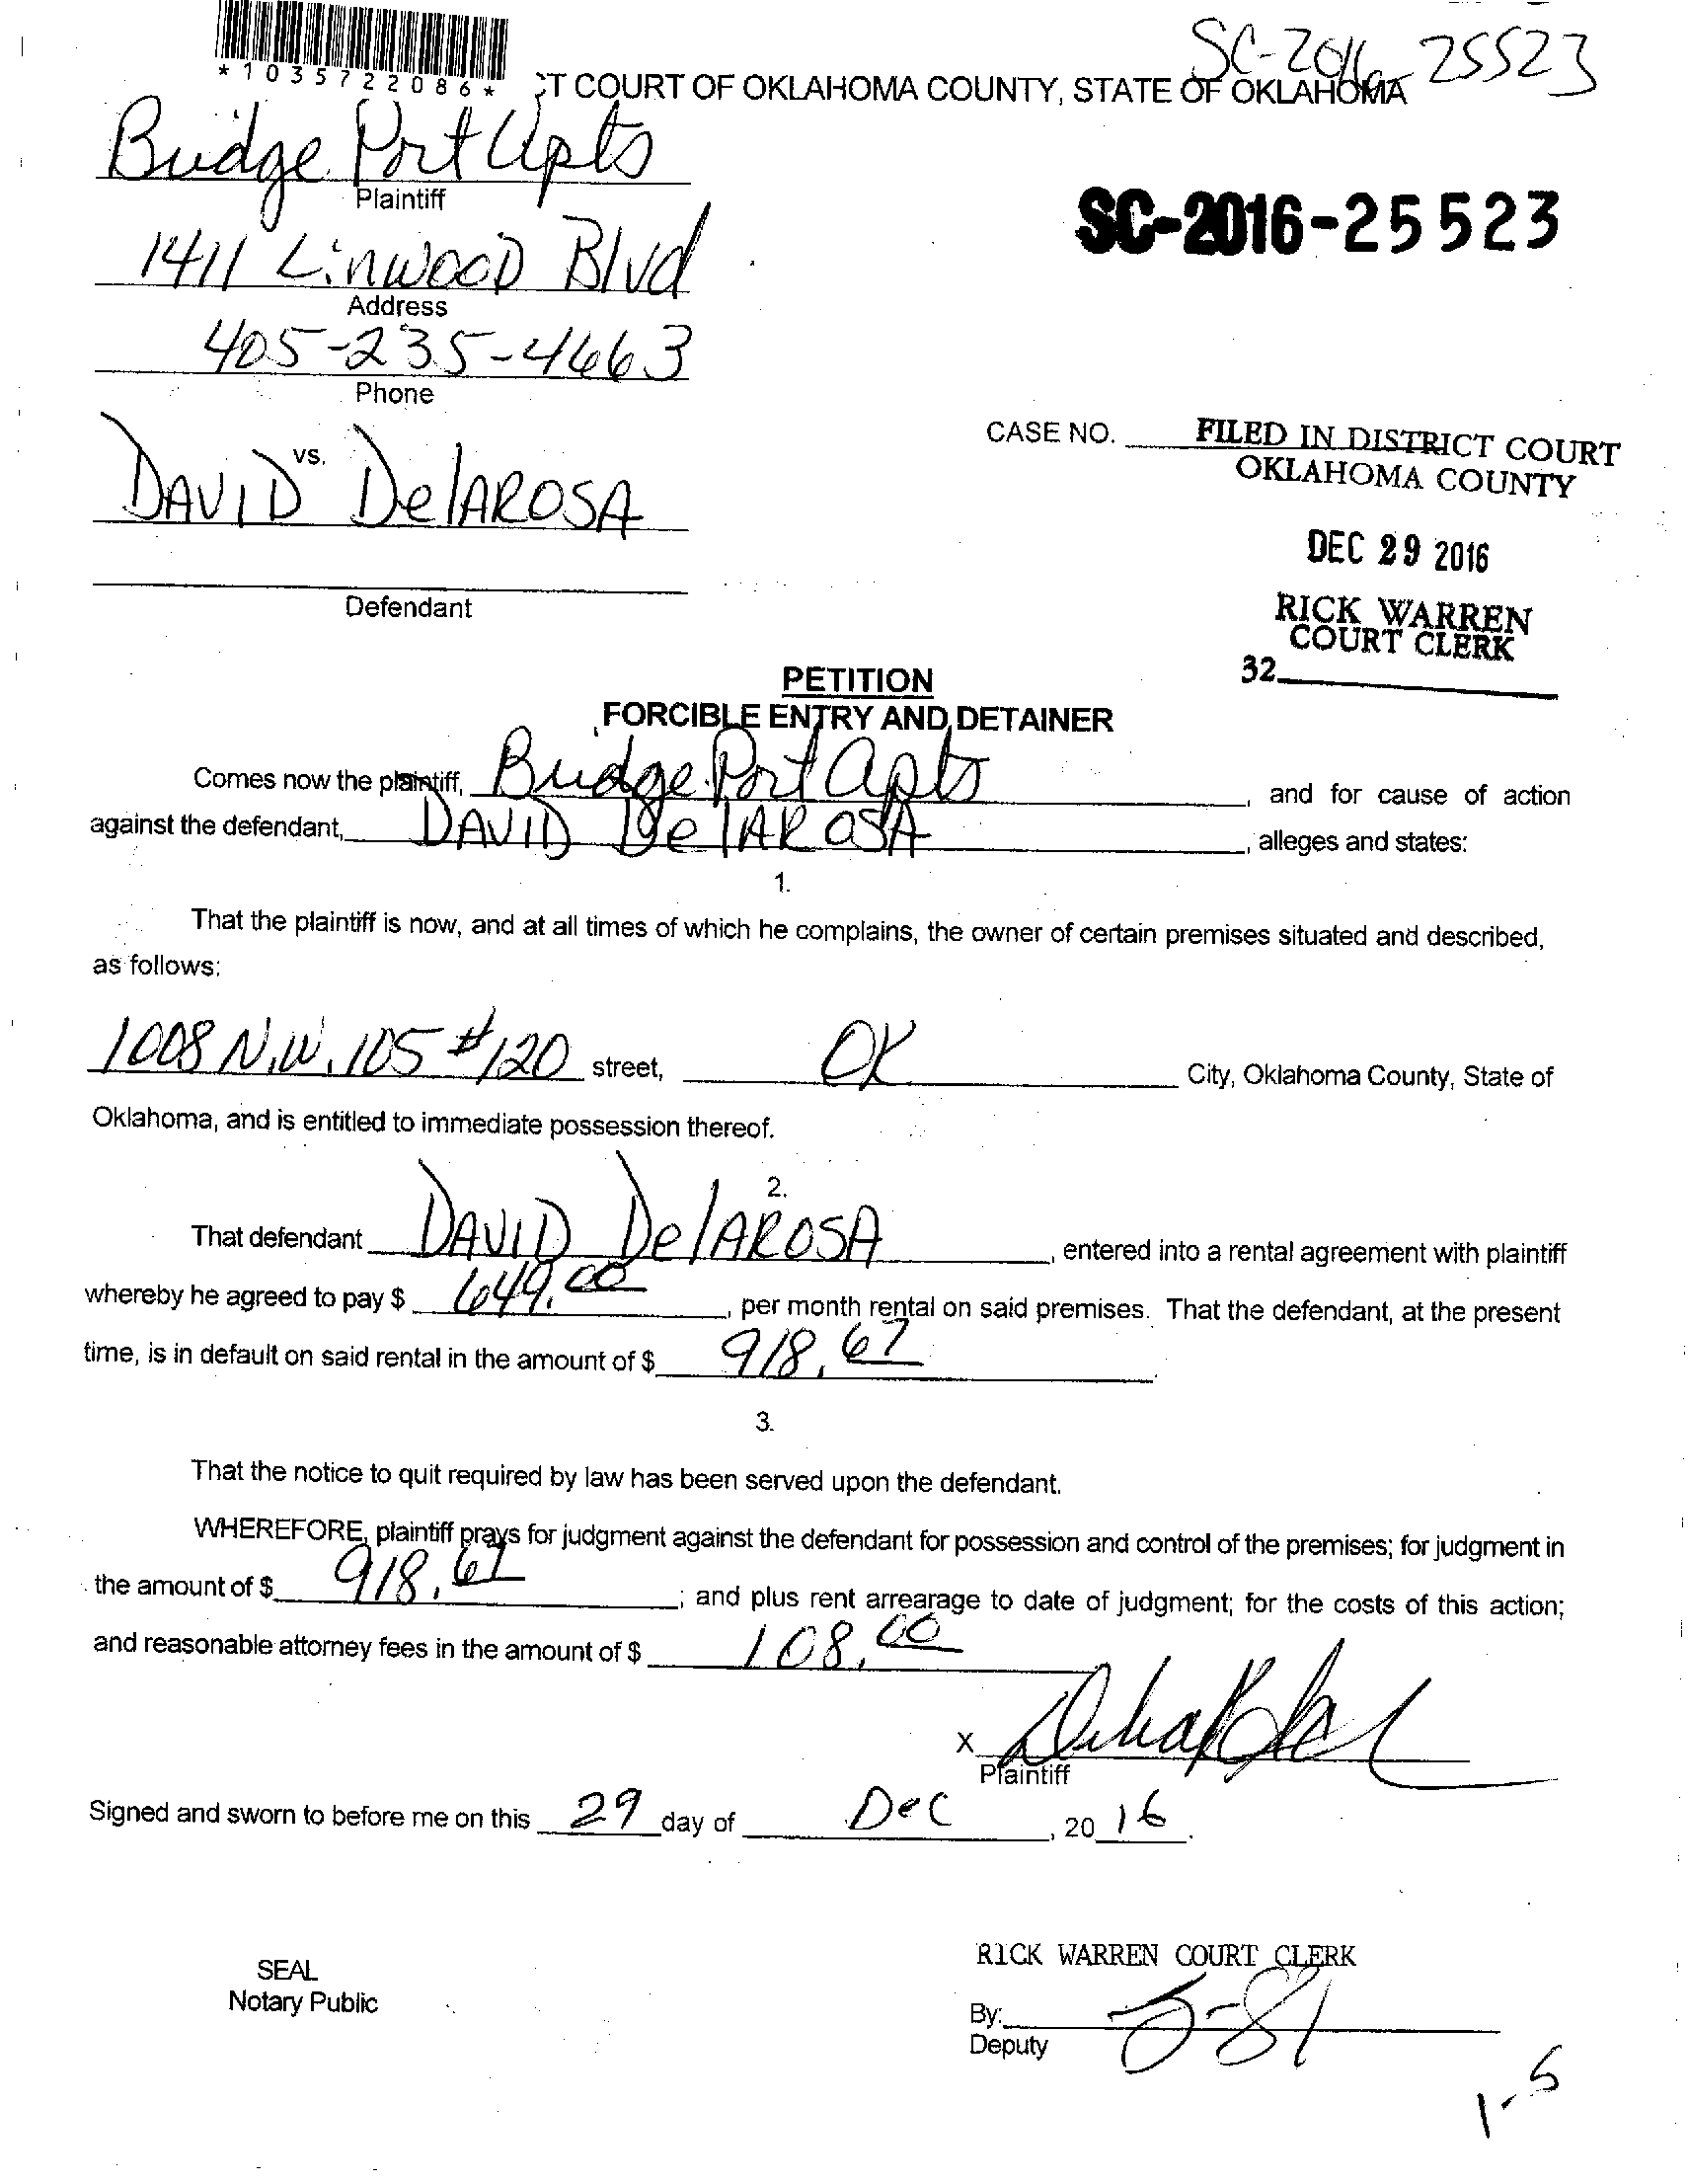 *1035722086*
SC-2016-25523
CT COURT OF OKLAHOMA COUNTY, STATE OF OKLAHOMA
Bridge Port Apts
Plaintiff
SC-2016-25523
1411 Linwood Blvd
Address
405-235-4663
Phone
vs.
CASE NO.
FILED IN DISTRICT COURT
OKLAHOMA COUNTY
DAVID DelAROSA
DEC 29 2016
Defendant
RICK WARREN
COURT CLERK
32
PETITION
FORCIBLE ENTRY AND DETAINER
Comes now the plaintiff, Bridge Port Apts, and for cause of action
against the defendant, DAVID DelAROSA, alleges and states:
1.
That the plaintiff is now, and at all times of which he complains, the owner of certain premises situated and described,
as follows:
1008 N.W. 105 #120 street, OK City, Oklahoma County, State of
Oklahoma, and is entitled to immediate possession thereof.
2.
That defendant DAVID DelAROSA, entered into a rental agreement with plaintiff
whereby he agreed to pay $ 649.00, per month rental on said premises. That the defendant, at the present
time, is in default on said rental in the amount of $ 918.67.
3.
That the notice to quit required by law has been served upon the defendant.
WHEREFORE, plaintiff prays for judgment against the defendant for possession and control of the premises; for judgment in
the amount of $ 918.67; and plus rent arrearage to date of judgment; for the costs of this action;
and reasonable attorney fees in the amount of $ 108.00
X
Plaintiff
Signed and sworn to before me on this 29 day of Dec, 2016.
SEAL
Notary Public
RICK WARREN COURT CLERK
By:
Deputy
1-5